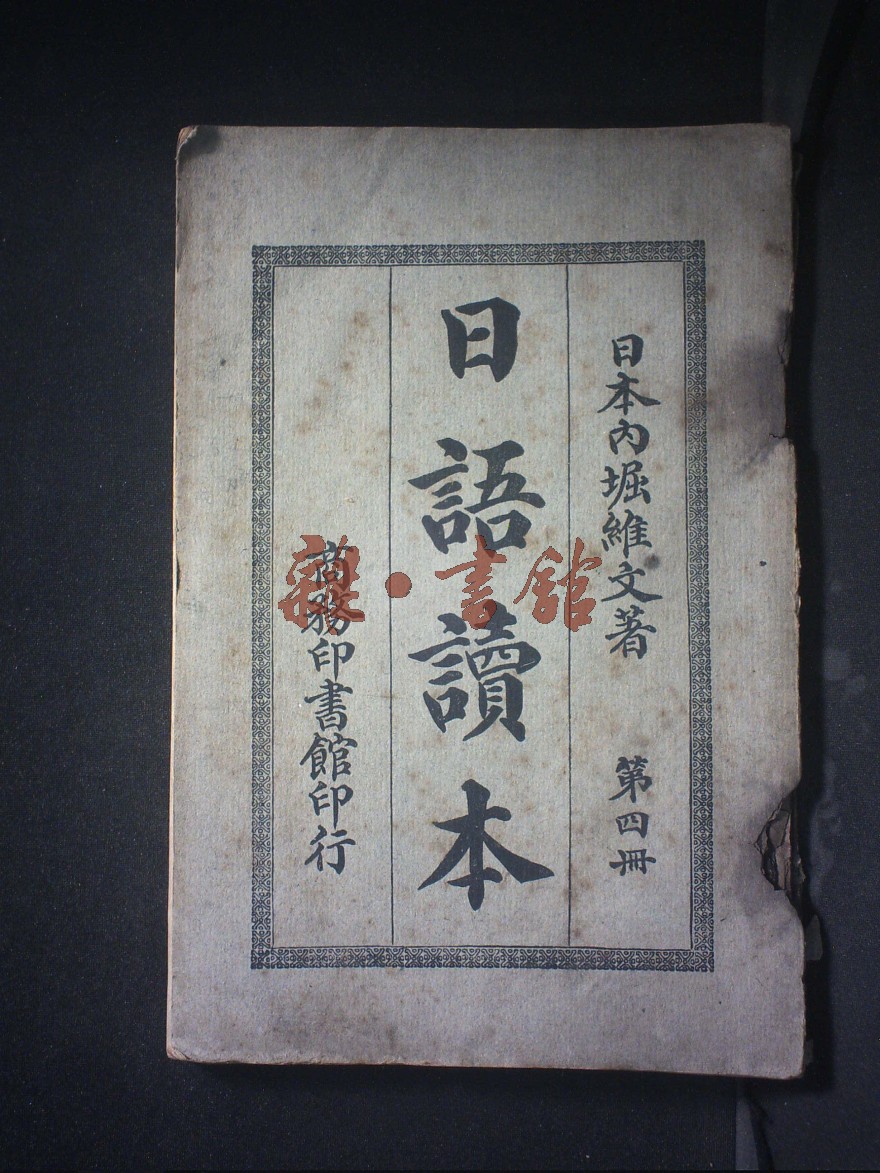 日本内堀維文著 第四冊
日語讀本
商務印書館印行
雜·書館